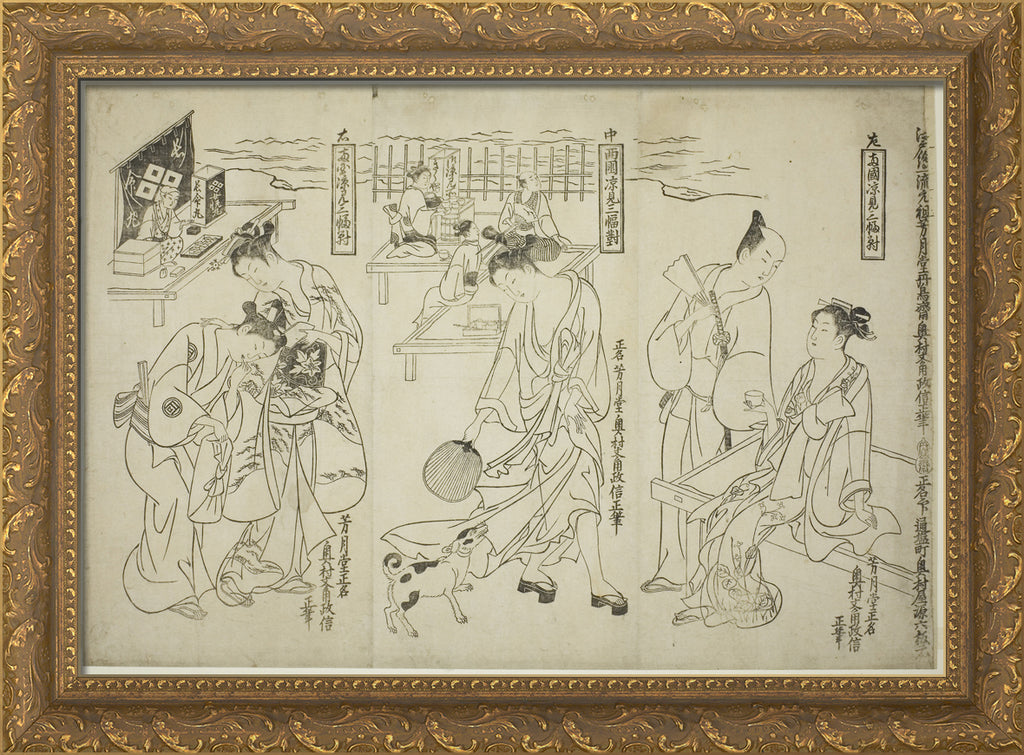 江戸絵一流元祖芳月堂丹鳥齋奥村文角政信正筆 正名下 通塩町奥村屋源六板元
左
両國涼見三幅對
芳月堂正名
奥村文角政信
正筆
中
兩國涼見三幅對
正名 芳月堂奥村文角政信正筆
右
両国涼見三幅對
芳月堂正名
奥村文角政信
正筆